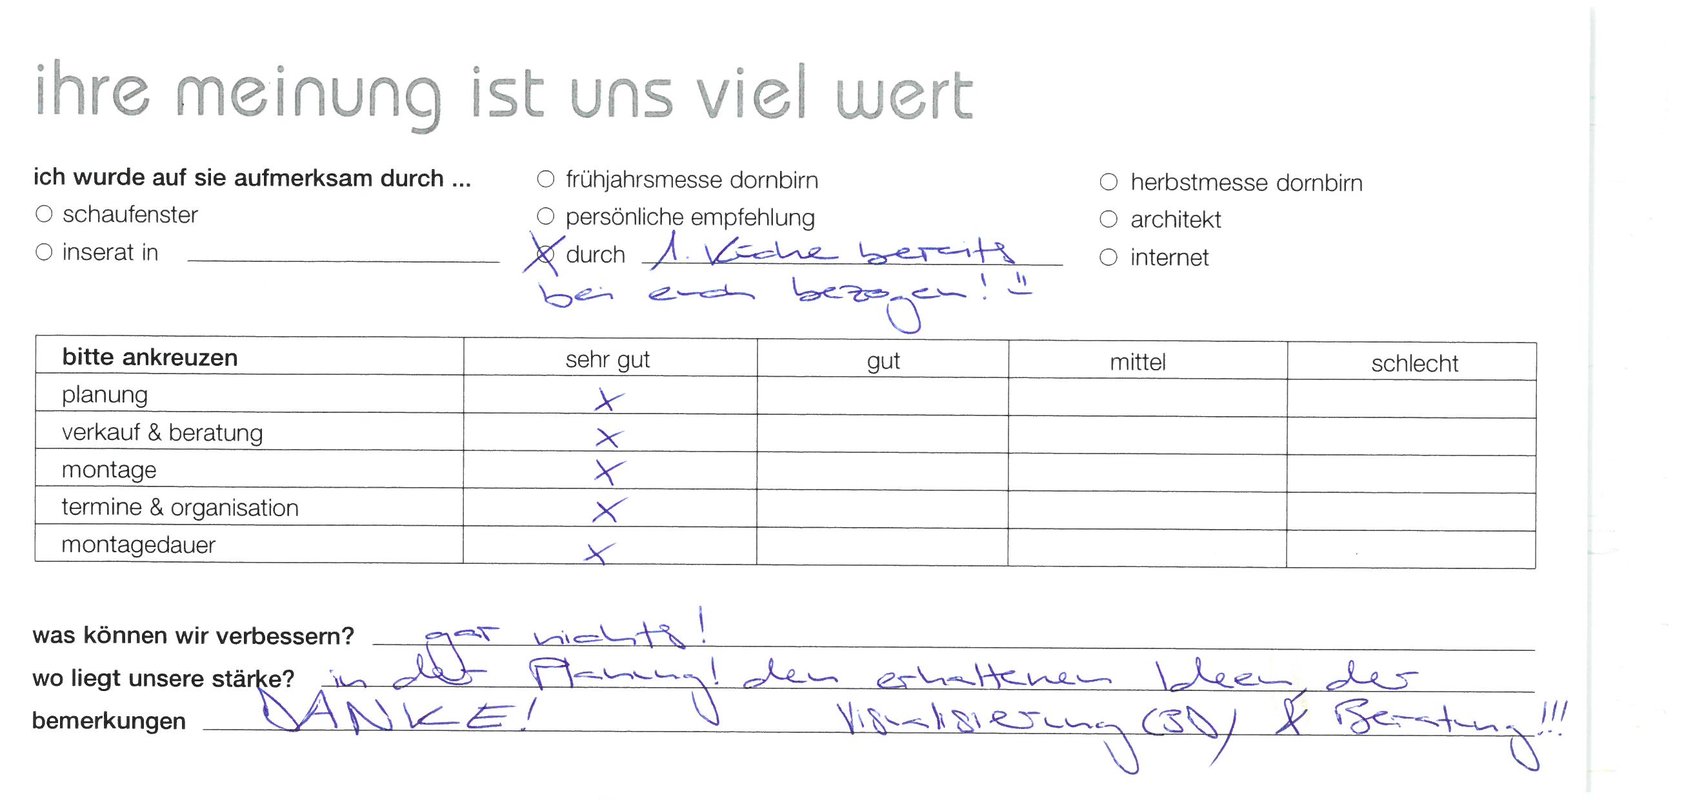 ihre meinung ist uns viel wert
ich wurde auf sie aufmerksam durch ...
frühjahrsmesse dornbirn
herbstmesse dornbirn
schaufenster
persönliche empfehlung
architekt
inserat in
durch 1. Küche bereits
internet
bei euch bezogen! :)
bitte ankreuzen sehr gut gut mittel schlecht
planung X
verkauf & beratung X
montage X
termine & organisation X
montagedauer X
was können wir verbessern? gar nichts!
wo liegt unsere stärke? in der Planung! den erhaltenen Ideen, der
bemerkungen DANKE! Visualisierung (3D) & Beratung!!!